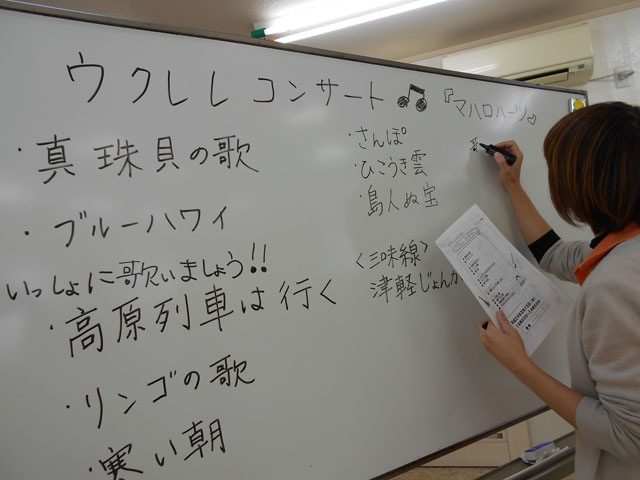 ウクレレ コンサート♫ 『マハロハーツ♡
・真珠貝の歌
・ブルーハワイ
いっしょに歌いましょう!!
・高原列車は行く
・リンゴの歌
・寒い朝
・さんぽ
・ひこうき雲
・島人ぬ宝
<三味線>
津軽じょんか